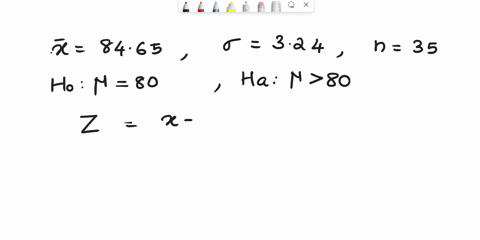 x̄ = 84.65 , σ = 3.24 , n = 35
Ho: μ = 80 , Ha: μ > 80
Z = x -